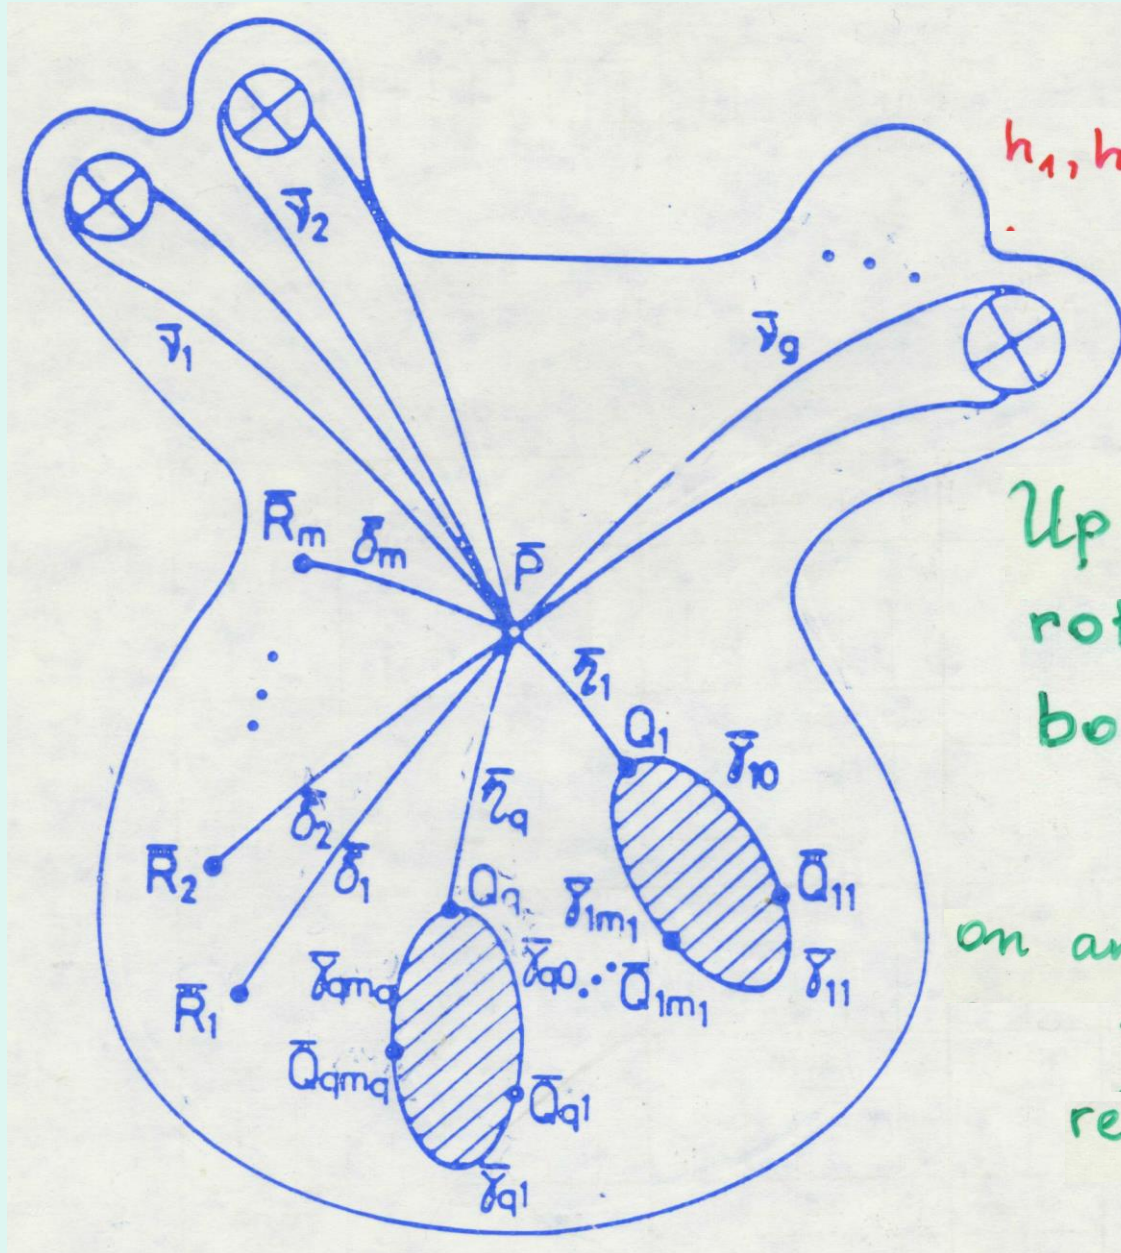 h₁, h
ν̄₂
ν̄₁
ν̄g
R̄m δ̄m
P̄
Up
rot
bo
η̄₁
Q₁
γ̄₁₀
η̄q
δ̄₂
R̄₂
δ̄₁
Qq
γ̄₁m₁
Q̄₁₁
on an
γ̄qmq
γ̄q0
Q̄₁m₁
γ̄₁₁
R̄₁
Q̄qmq
Q̄q1
re
γ̄q1